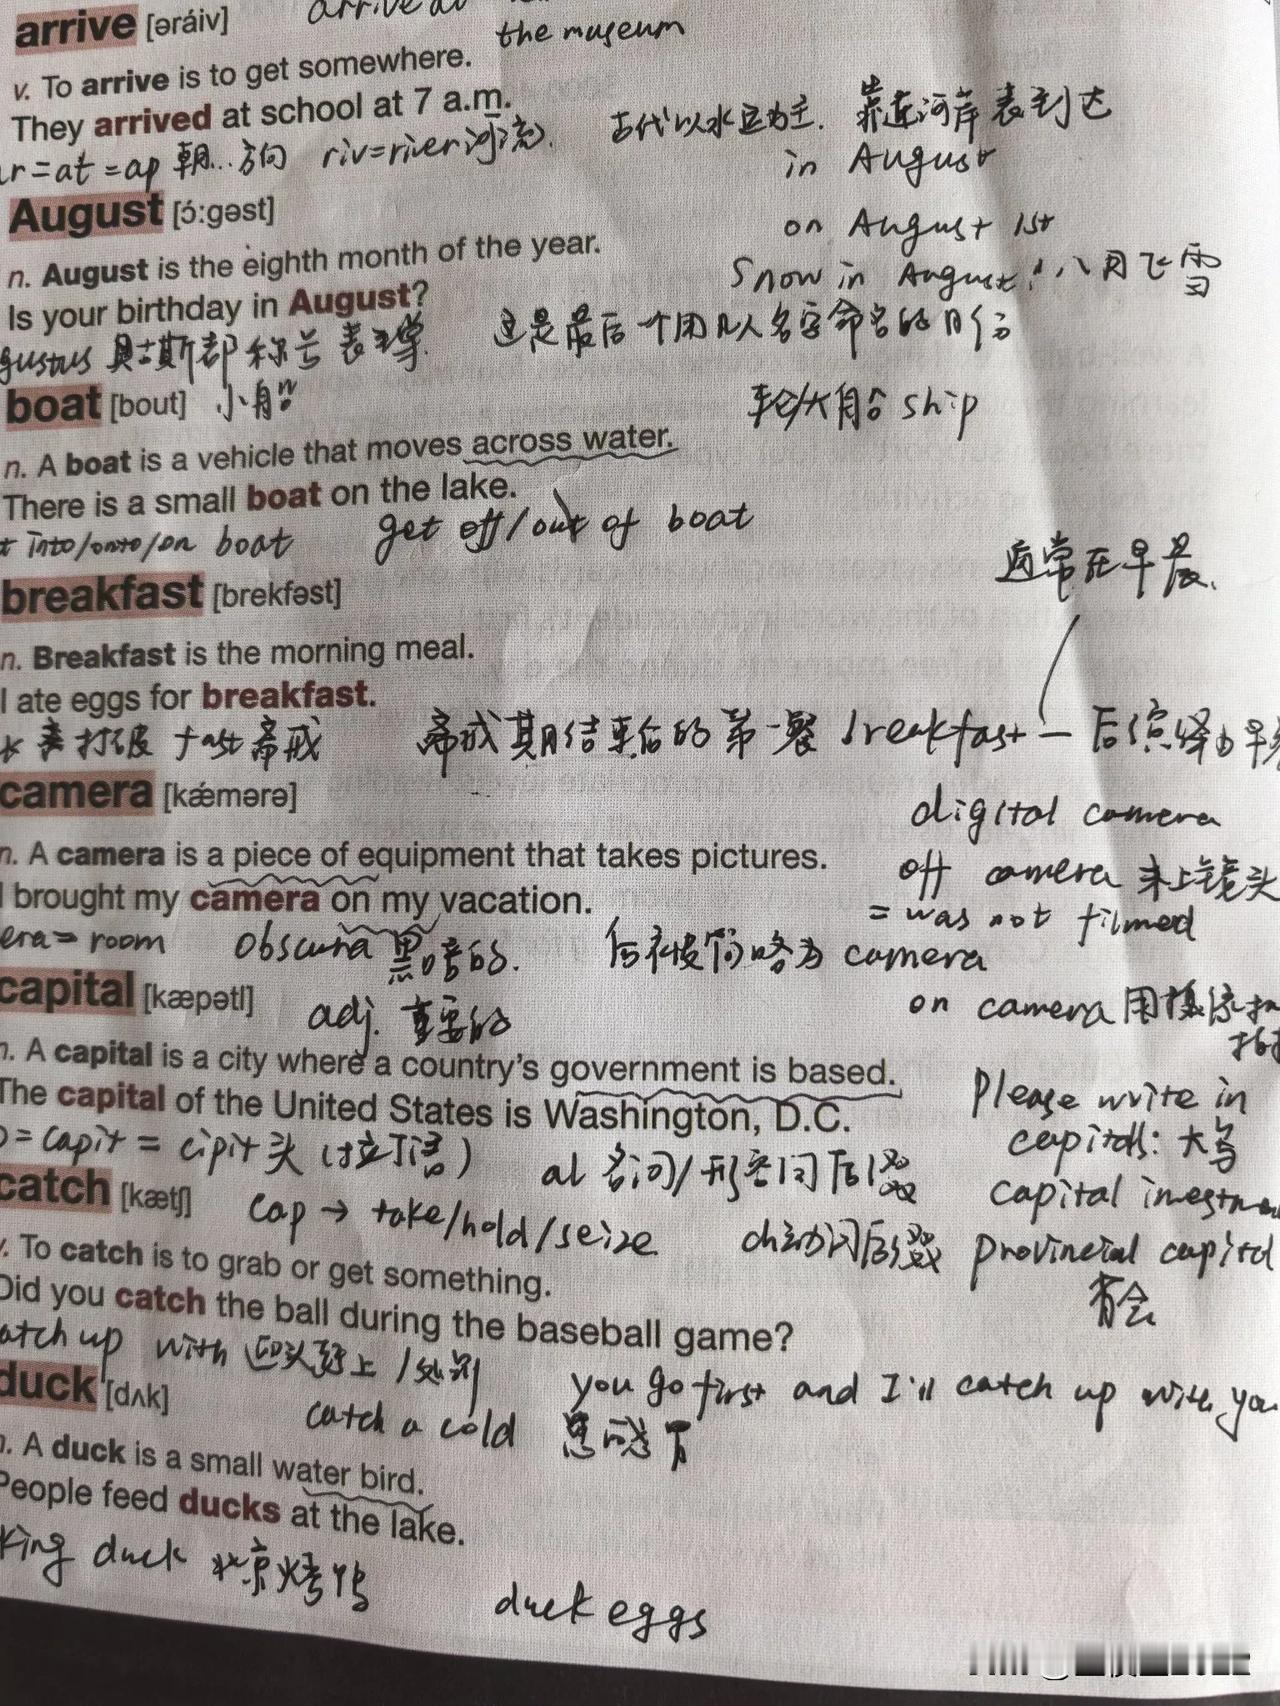 arrive [əráiv]
the museum
v. To arrive is to get somewhere.
They arrived at school at 7 a.m.
=at =ap 朝...方向 riv=river河流. 古代以水运为主. 靠近河岸表到达
in August
August [ɔ́:gəst]
on August 1st
n. August is the eighth month of the year.
Snow in August! 八月飞雪
Is your birthday in August?
gustus 奥古斯都 称号 表 这是最后一个用凡人名字命名的月份
boat [bout] 小船 轮/大船 ship
n. A boat is a vehicle that moves across water.
There is a small boat on the lake.
into/onto/on boat get off/out of boat
通常在早晨.
breakfast [brekfəst]
n. Breakfast is the morning meal.
I ate eggs for breakfast.
打破 fast 斋戒 斋戒期结束后的第一餐 breakfast — 后演绎为早
camera [kǽmərə]
digital camera
n. A camera is a piece of equipment that takes pictures.
off camera 未上镜头
I brought my camera on my vacation.
= was not filmed
era= room obscura 黑暗的. 后被简略为 camera
capital [kæpətl] adj. 重要的
on camera 用摄像
n. A capital is a city where a country's government is based.
Please write in
The capital of the United States is Washington, D.C.
capitals: 大写
=capit = cipit 头 (拉丁语) al 名词/形容词后缀
capital
catch [kætʃ] cap → take/hold/seize ch动词后缀
provincial capital
省会
v. To catch is to grab or get something.
Did you catch the ball during the baseball game?
atch up with 迎头赶上
you go first and I'll catch up with you
duck [dʌk]
catch a cold 患感冒
n. A duck is a small water bird.
People feed ducks at the lake.
king duck 北京烤鸭
duck eggs